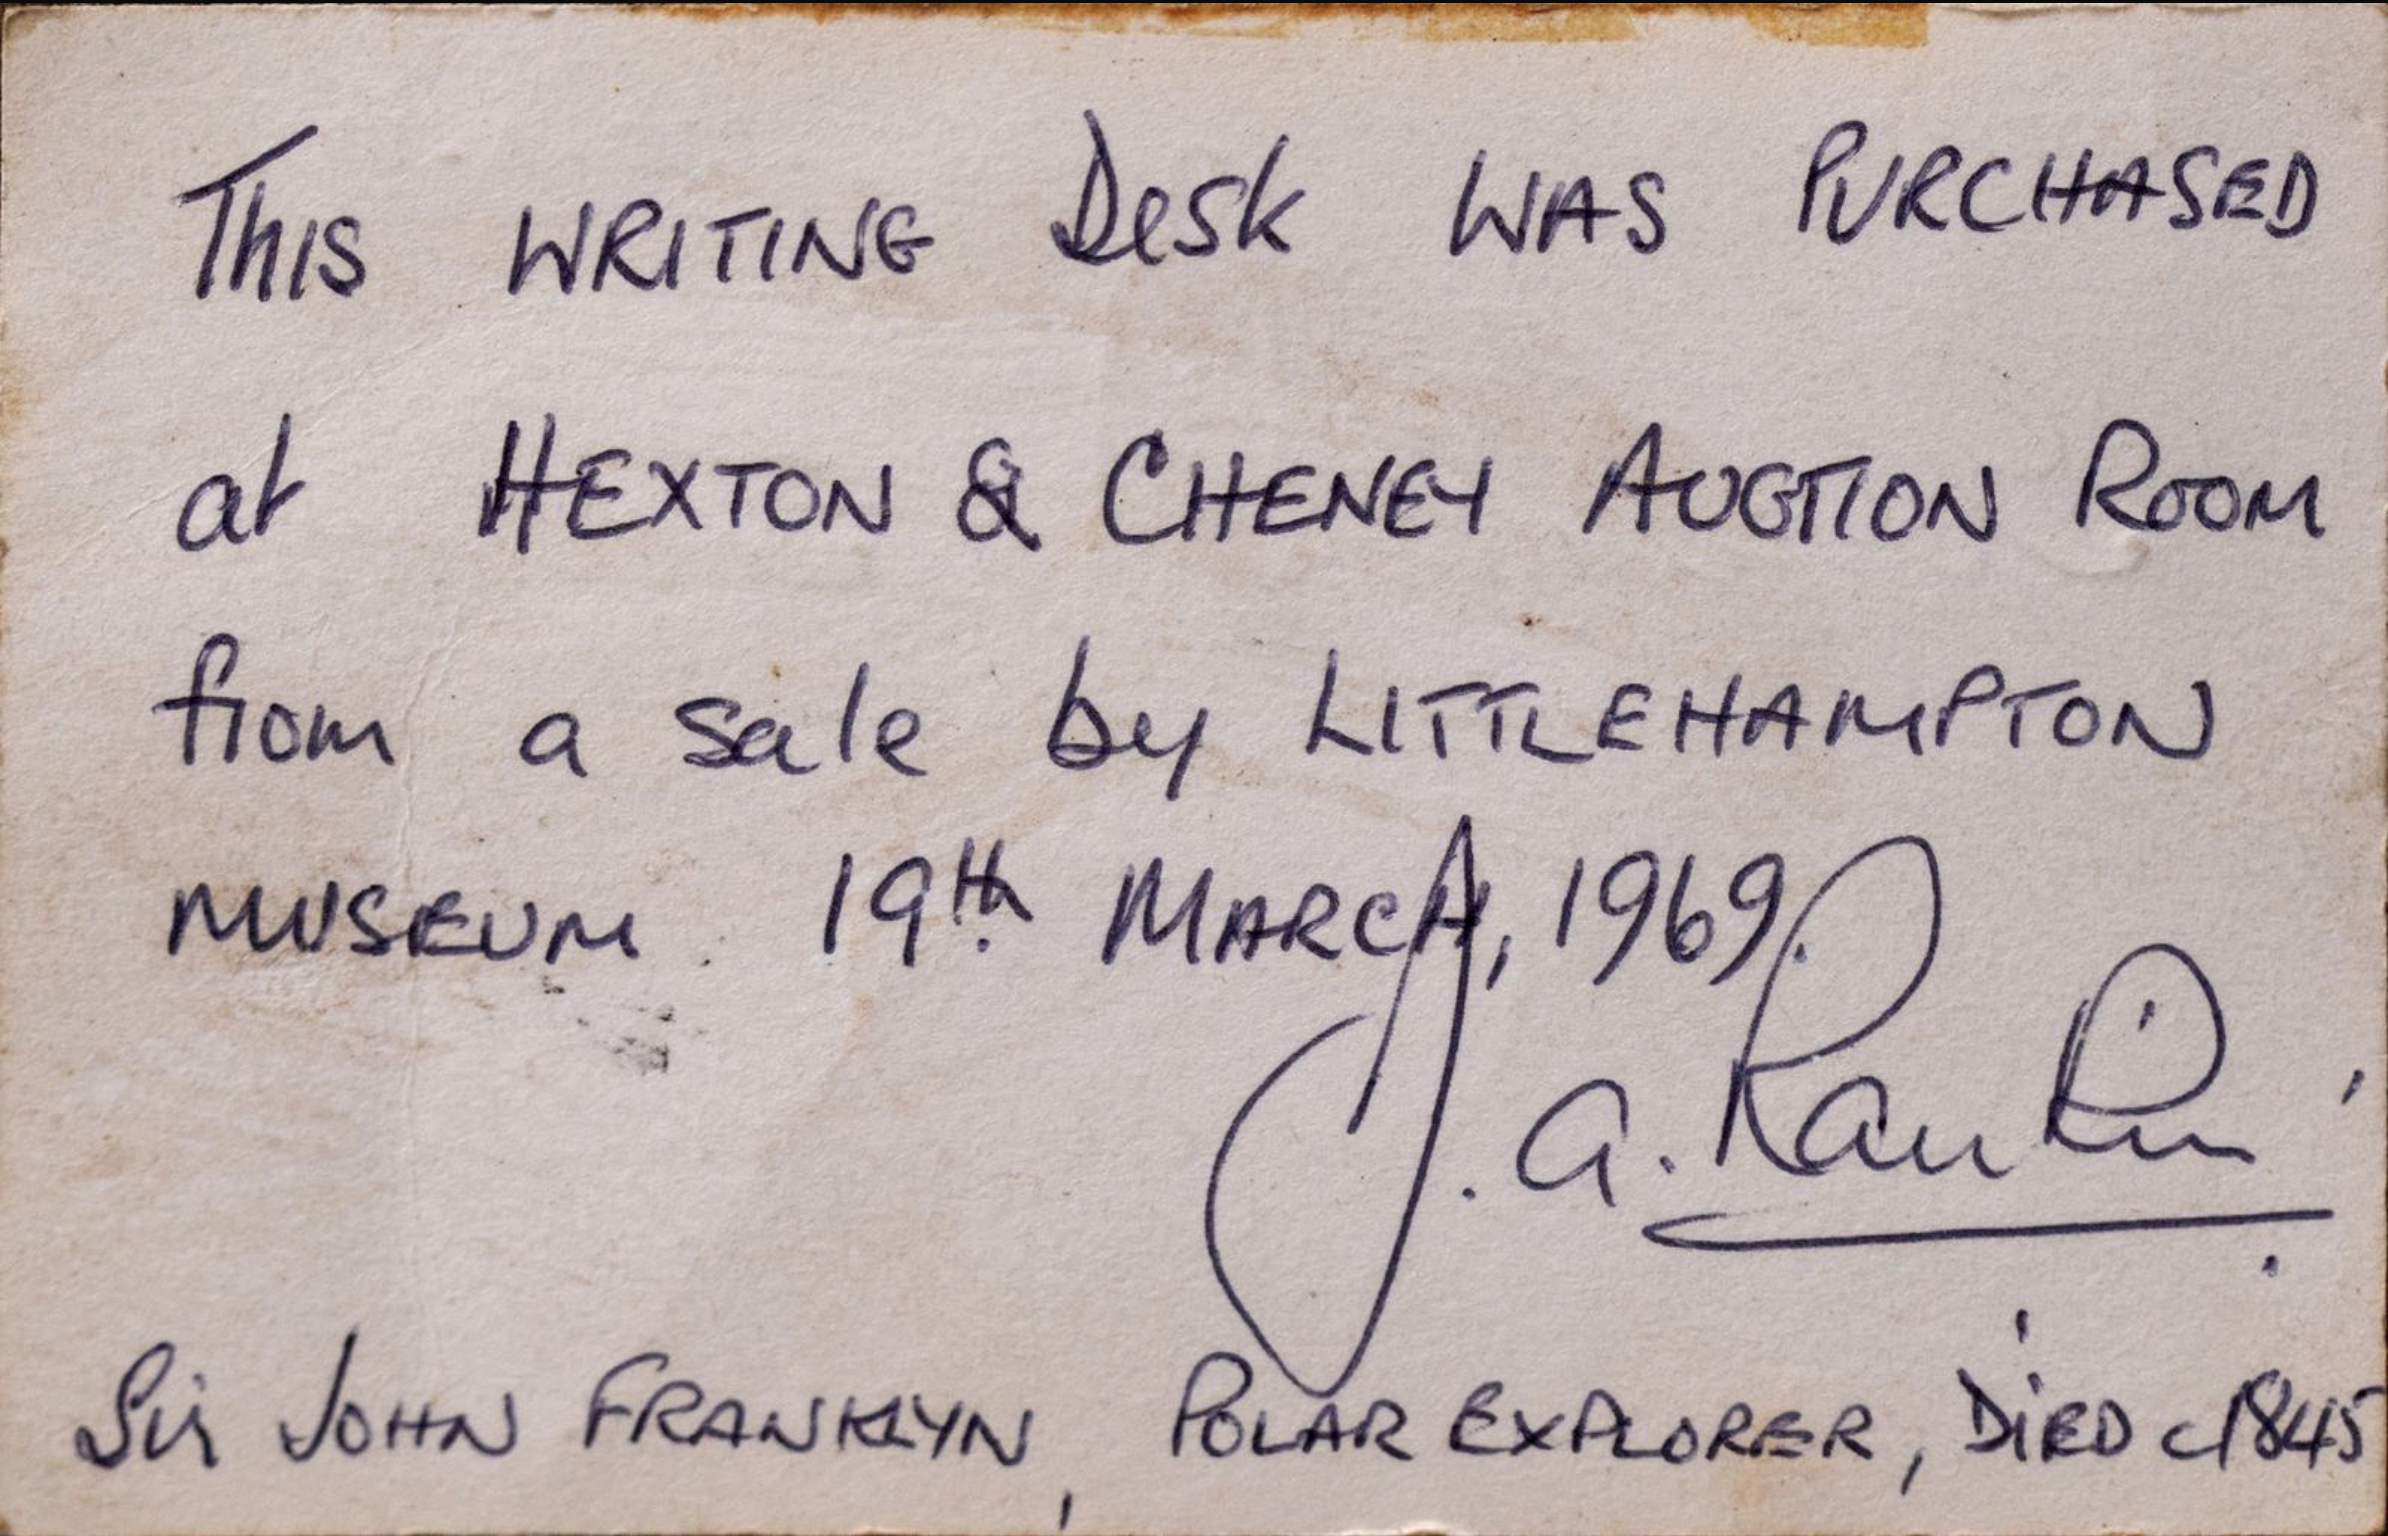 This WRITING Desk WAS PURCHASED
at HEXTON & CHENEY AUCTION ROOM
from a sale by LITTLEHAMPTON
MUSEUM. 19th MARCH, 1969.
J. A. Rankin
Sir JOHN FRANKLYN, POLAR EXPLORER, DiED c1845